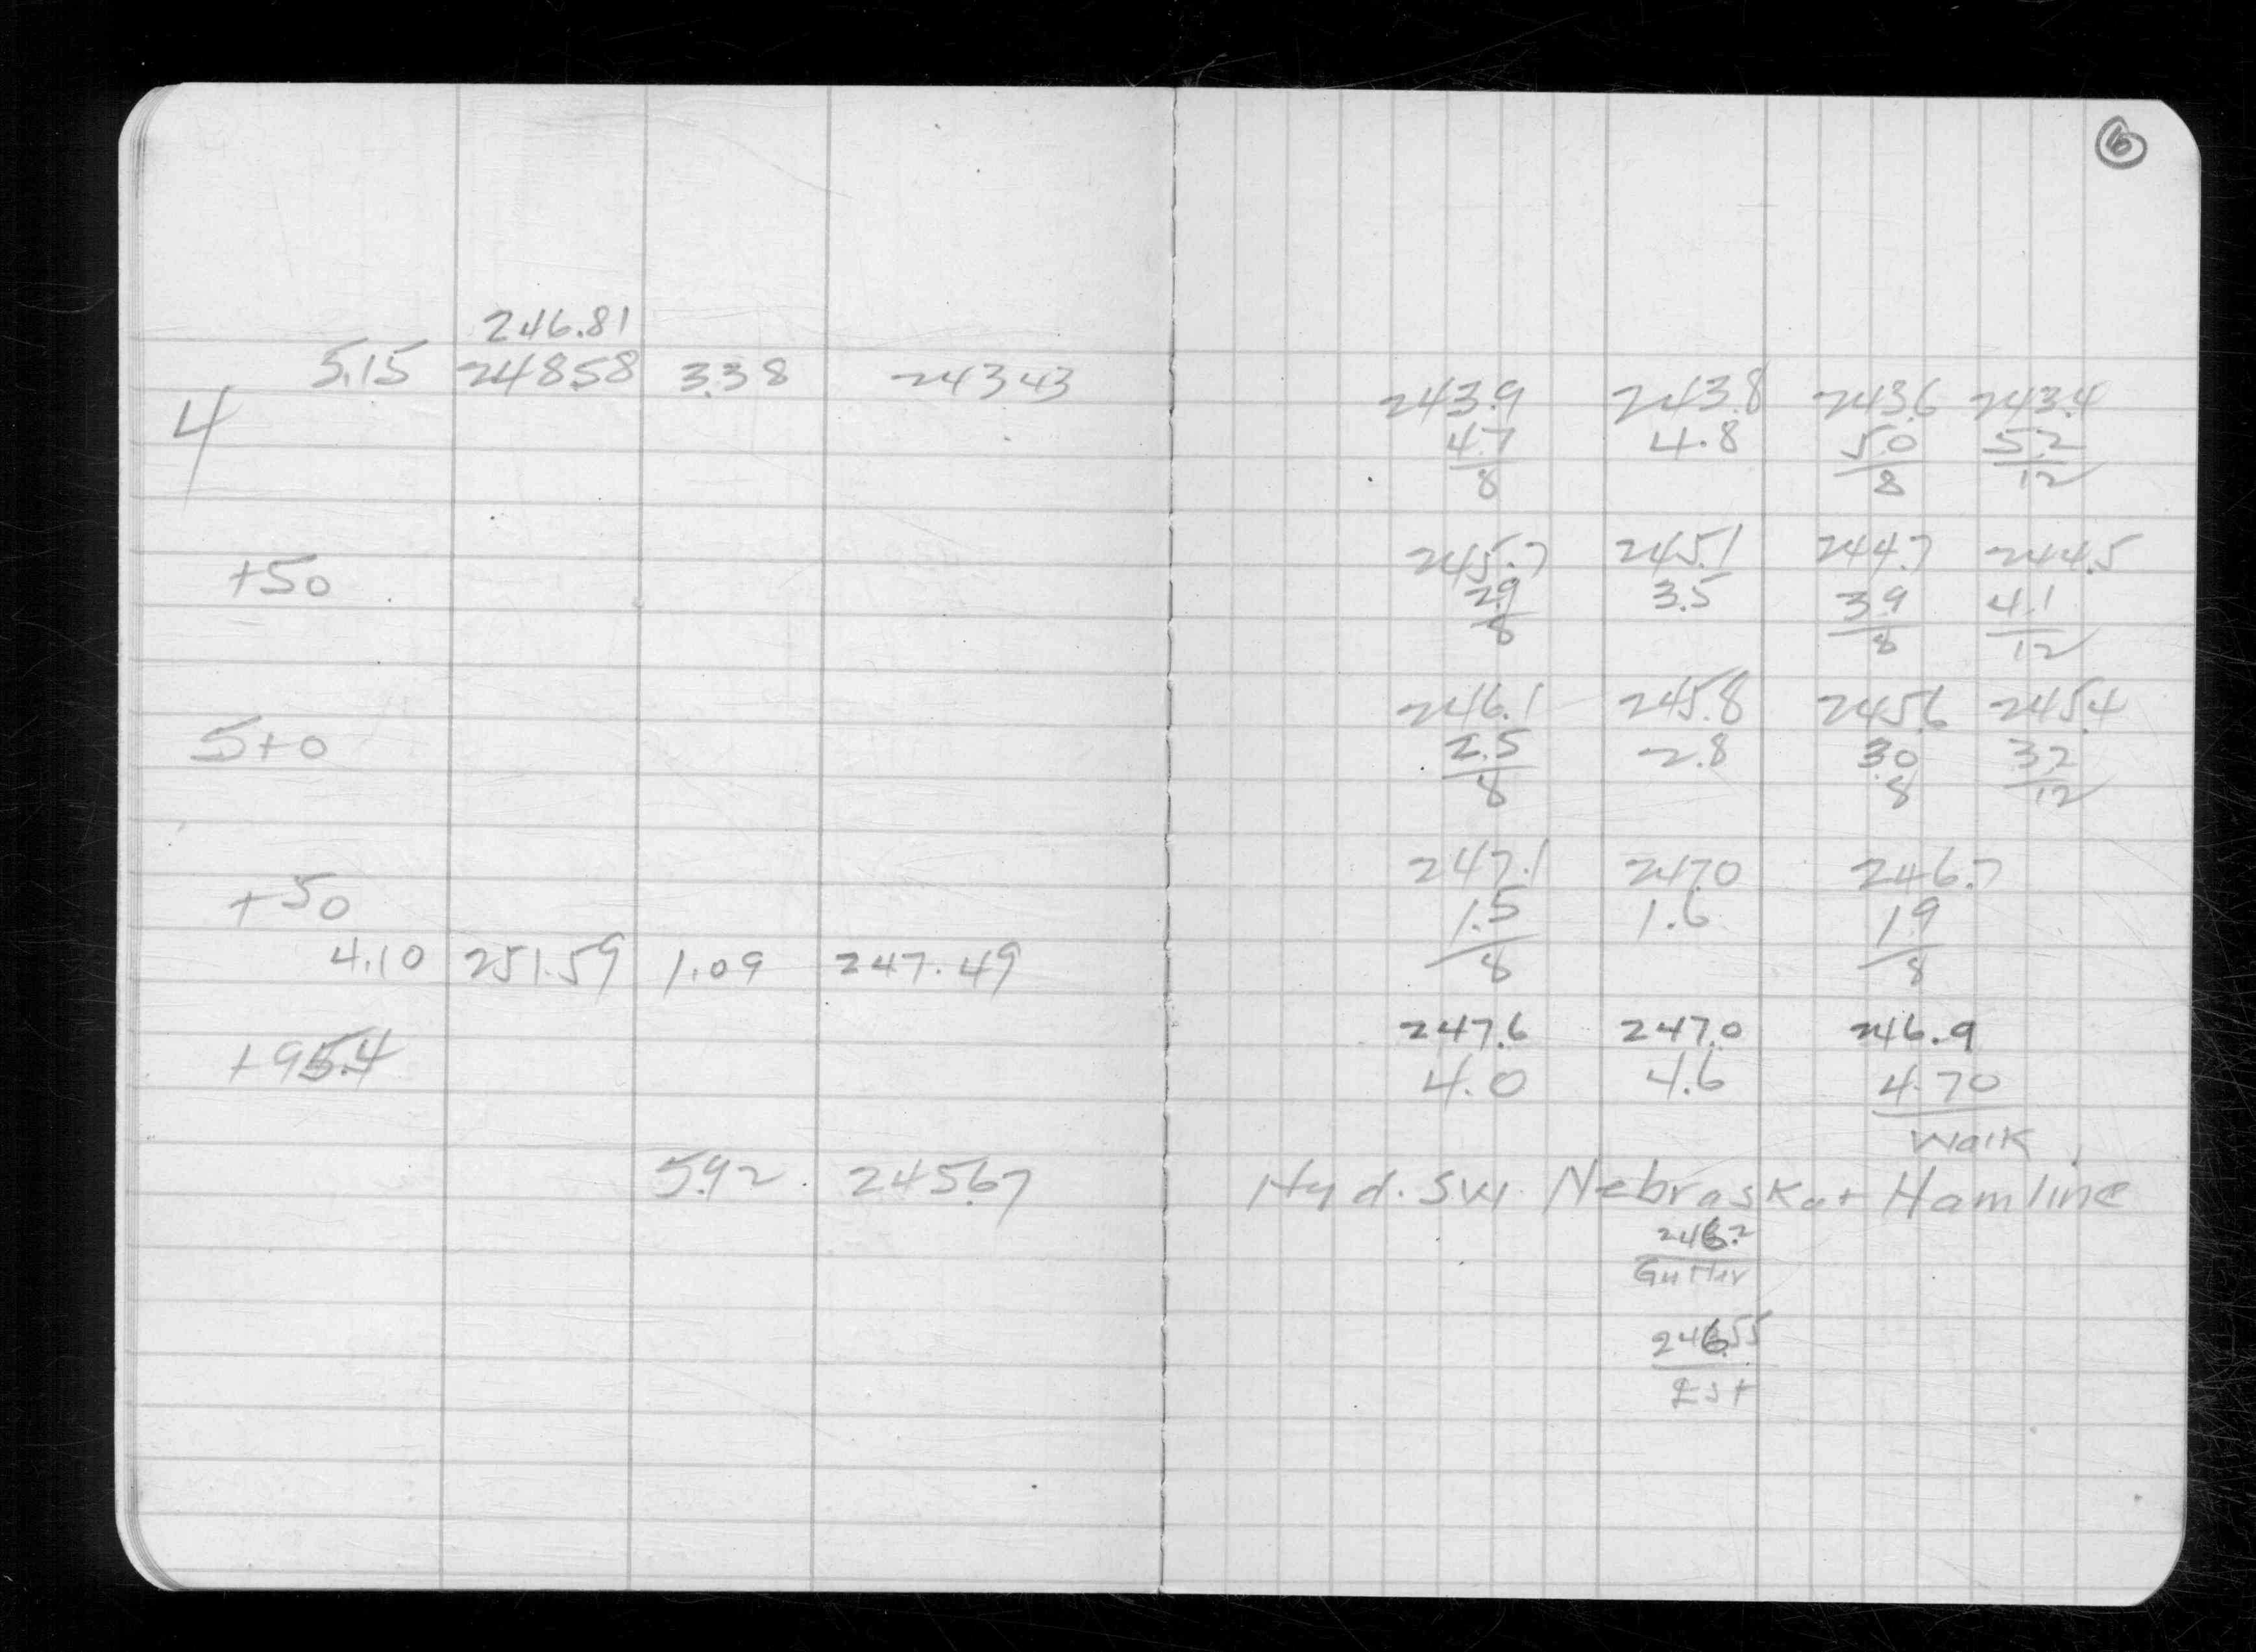 16
246.81
5.15 248.58 3.38 243.43
4
243.9 243.8 243.6 243.4
4.7 4.8 5.0 5.2
8 8 12
+50
245.7 245.1 244.7 244.5
2.9 3.5 3.9 4.1
8 8 12
5+0
246.1 245.8 245.6 245.4
2.5 2.8 3.0 3.2
8 8 12
+50
247.1 247.0 246.7
1.5 1.6 1.9
8 8
4.10 251.59 1.09 247.49
+95.4
247.6 247.0 246.9
4.0 4.6 4.70
Walk
5.92 245.67 Hyd. SW. Nebraska + Hamline
246.2
Gutter
246.55
Est